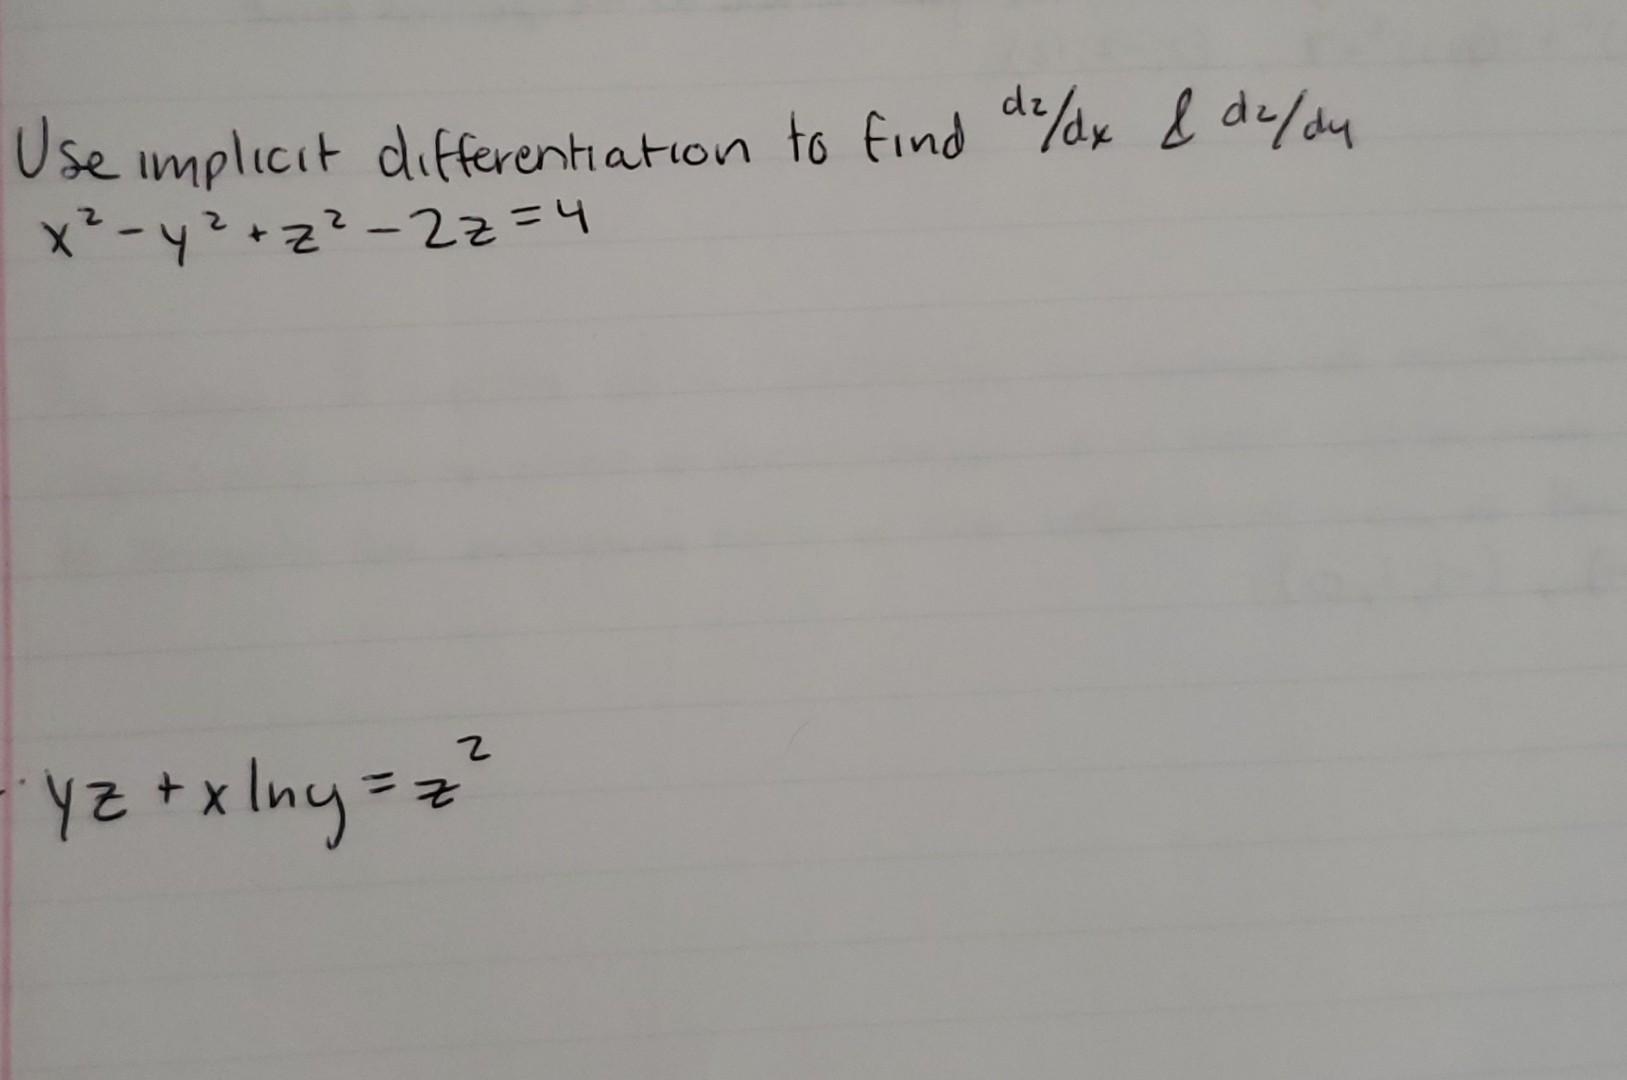 Use implicit differentiation to find dz/dx & dz/dy
x² - y² + z² - 2z = 4
yz + x ln y = z²